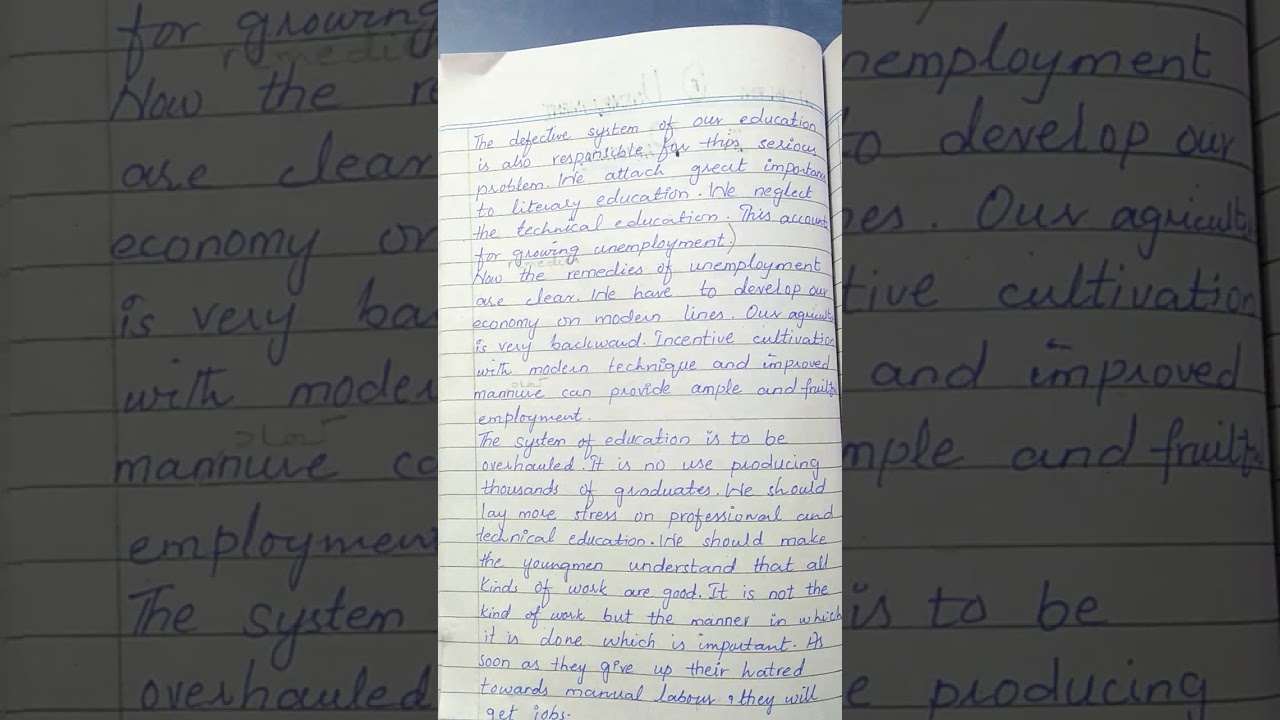 The defective system of our education
is also responsible for this serious
problem. We attach great importan
to literary education. We neglect
the technical education. This account
for growing unemployment.)
Now the remedies of unemployment
are clear. We have to develop our
economy on modern lines. Our agricult
is very backward. Incentive cultivation
with modern technique and improved
mannure can provide ample and fruitf
employment.
The system of education is to be
overhauled. It is no use producing
thousands of graduates. We should
lay more stress on professional and
technical education. We should make
the youngmen understand that all
kinds of work are good. It is not the
kind of work but the manner in which
it is done which is important. As
soon as they give up their hatred
towards manual labour, they will
get jobs.